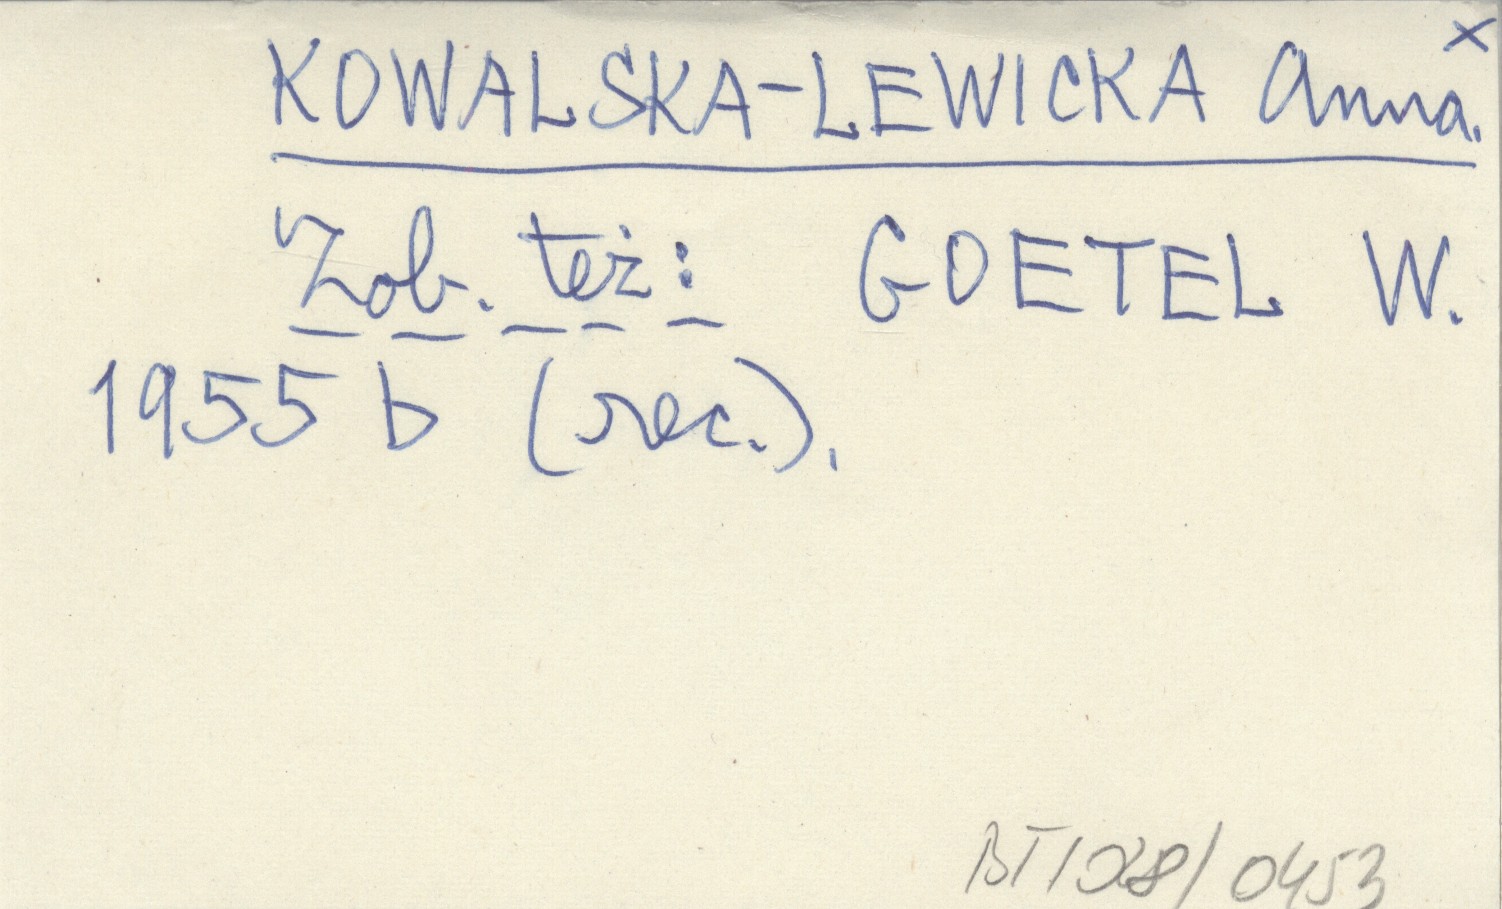 x
KOWALSKA-LEWICKA Anna.
Zob. też: GOETEL W.
1955 b (rec.).
BT/028/0453